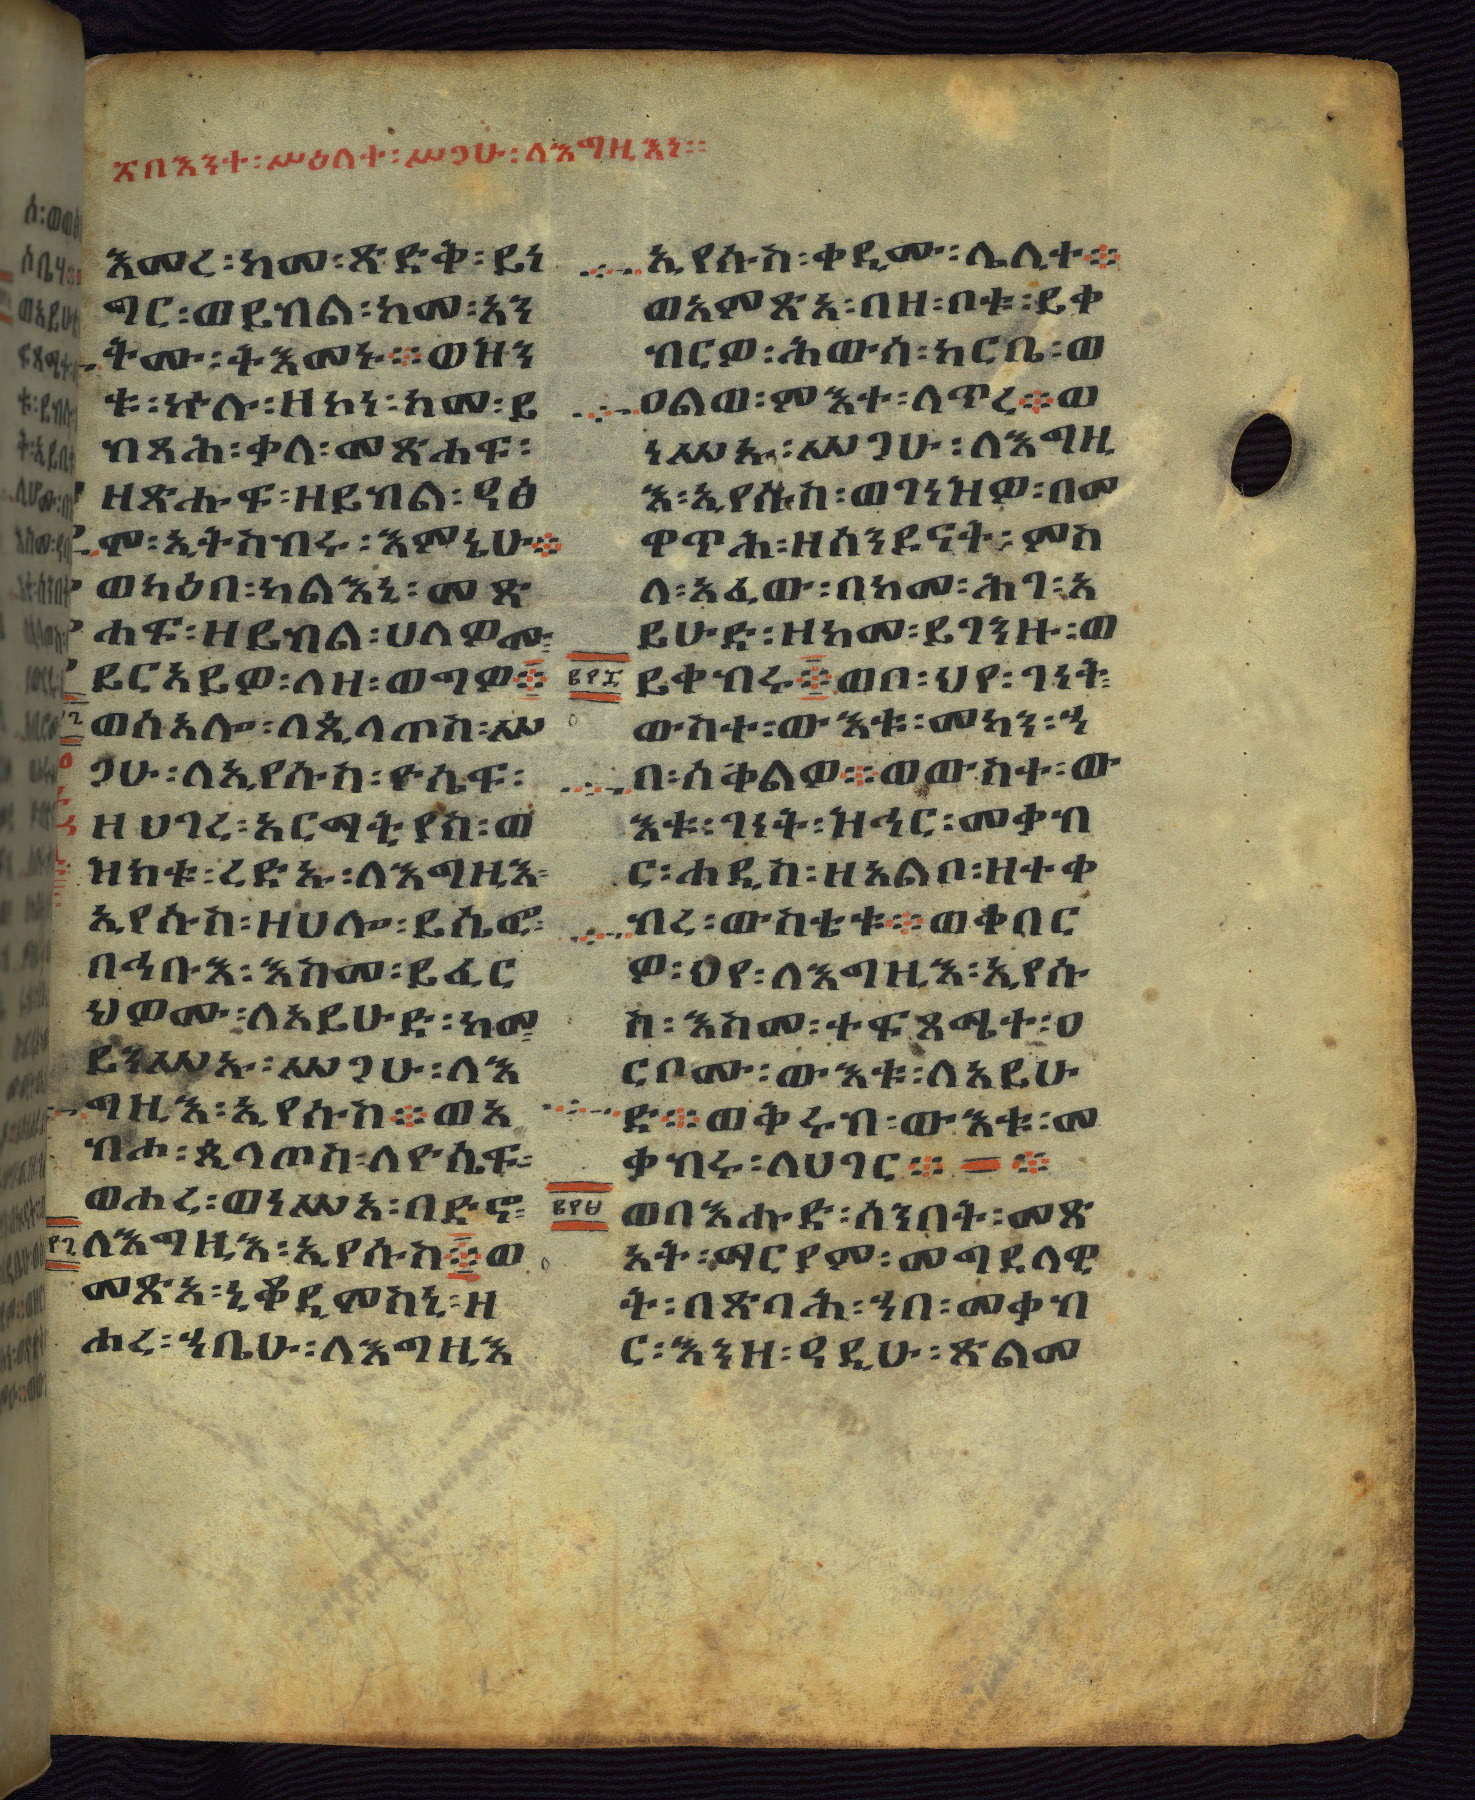 ፲በእንተ፡ሥዕለተ፡ሥጋሁ፡ለእግዚእነ።
አመረ፡ከመ፡ጽድቅ፡ይነ
ግር፡ወይብል፡ከመ፡አን
ትሙ፡ትእመኑ፨ወዝን
ቱ፡ኵሉ፡ዘኮነ፡ከመ፡ይ
ብጻሕ፡ቃለ፡መጽሐፍ፡
ዘጽሑፍ፡ዘይብል፡ዓፅ
ሞ፡ኢትስብሩ፡እምኔሁ፨
ወካዕበ፡ካልእኒ፡መጽ
ሐፍ፡ዘይብል፡ሀለዎሙ፡
ይርአይዎ፡ለዘ፡ወግዎ፨
ወሰአሎ፡ለጲላጦስ፡ሥ
ጋሁ፡ለኢየሱስ፡ዮሴፍ፡
ዘሀገረ፡አርማትያስ፡ወ
ዝክቱ፡ረድኡ፡ለእግዚእ፡
ኢየሱስ፡ዘሀሎ፡ይሴፎ፡
በኅቡእ፡እስመ፡ይፈር
ህዎሙ፡ለአይሁድ፡ከመ፡
ይንሣእ፡ሥጋሁ፡ለእ
ግዚእ፡ኢየሱስ፨ወአ
ብሖ፡ጲላጦስ፡ለዮሴፍ፡
ወሐረ፡ወነሥአ፡በድኖ፡
ለእግዚእ፡ኢየሱስ፨ወ
መጽአ፡ኒቆዲሞስኒ፡ዘ
ሐረ፡ኀቤሁ፡ለእግዚእ
ኢየሱስ፡ቀዲሙ፡ሌሊተ፨
ወአምጽአ፡በዘ፡ቦቱ፡ይቀ
ብርዎ፡ሕውሰ፡ከርቤ፡ወ
ዐልወ፡ምእተ፡ለጥረ፨ወ
ነሥኡ፡ሥጋሁ፡ለእግዚ
እ፡ኢየሱስ፡ወገነዝዎ፡በመ
ዋጥሕ፡ዘሰንዶናት፡ምስ
ለ፡አፈው፡በከመ፡ሕገ፡አ
ይሁድ፡ዘከመ፡ይገንዙ፡ወ
፪፻፲ ይቀብሩ፨ወቦ፡ህየ፡ገነት፡
ውስተ፡ውእቱ፡መካን፡ኀ
በ፡ሰቀልዎ፨ወውስተ፡ው
እቱ፡ገነት፡ዝኅር፡መቃብ
ር፡ሐዲስ፡ዘአልቦ፡ዘተቀ
ብረ፡ውስቴቱ፨ወቀበር
ዎ፡ህየ፡ለእግዚእ፡ኢየሱ
ስ፡እስመ፡ተፍጻሜተ፡ዐ
ርቦሙ፡ውእቱ፡ለአይሁ
ድ፨ወቅሩብ፡ውእቱ፡መ
ቃብሩ፡ለሀገር፨፨
ወበእሑድ፡ሰንበት፡መጽ
አት፡ማርያም፡መግደላዊ
ት፡በጽባሕ፡ኀበ፡መቃብ
ር፡እንዘ፡ዓዲሁ፡ጽልመ